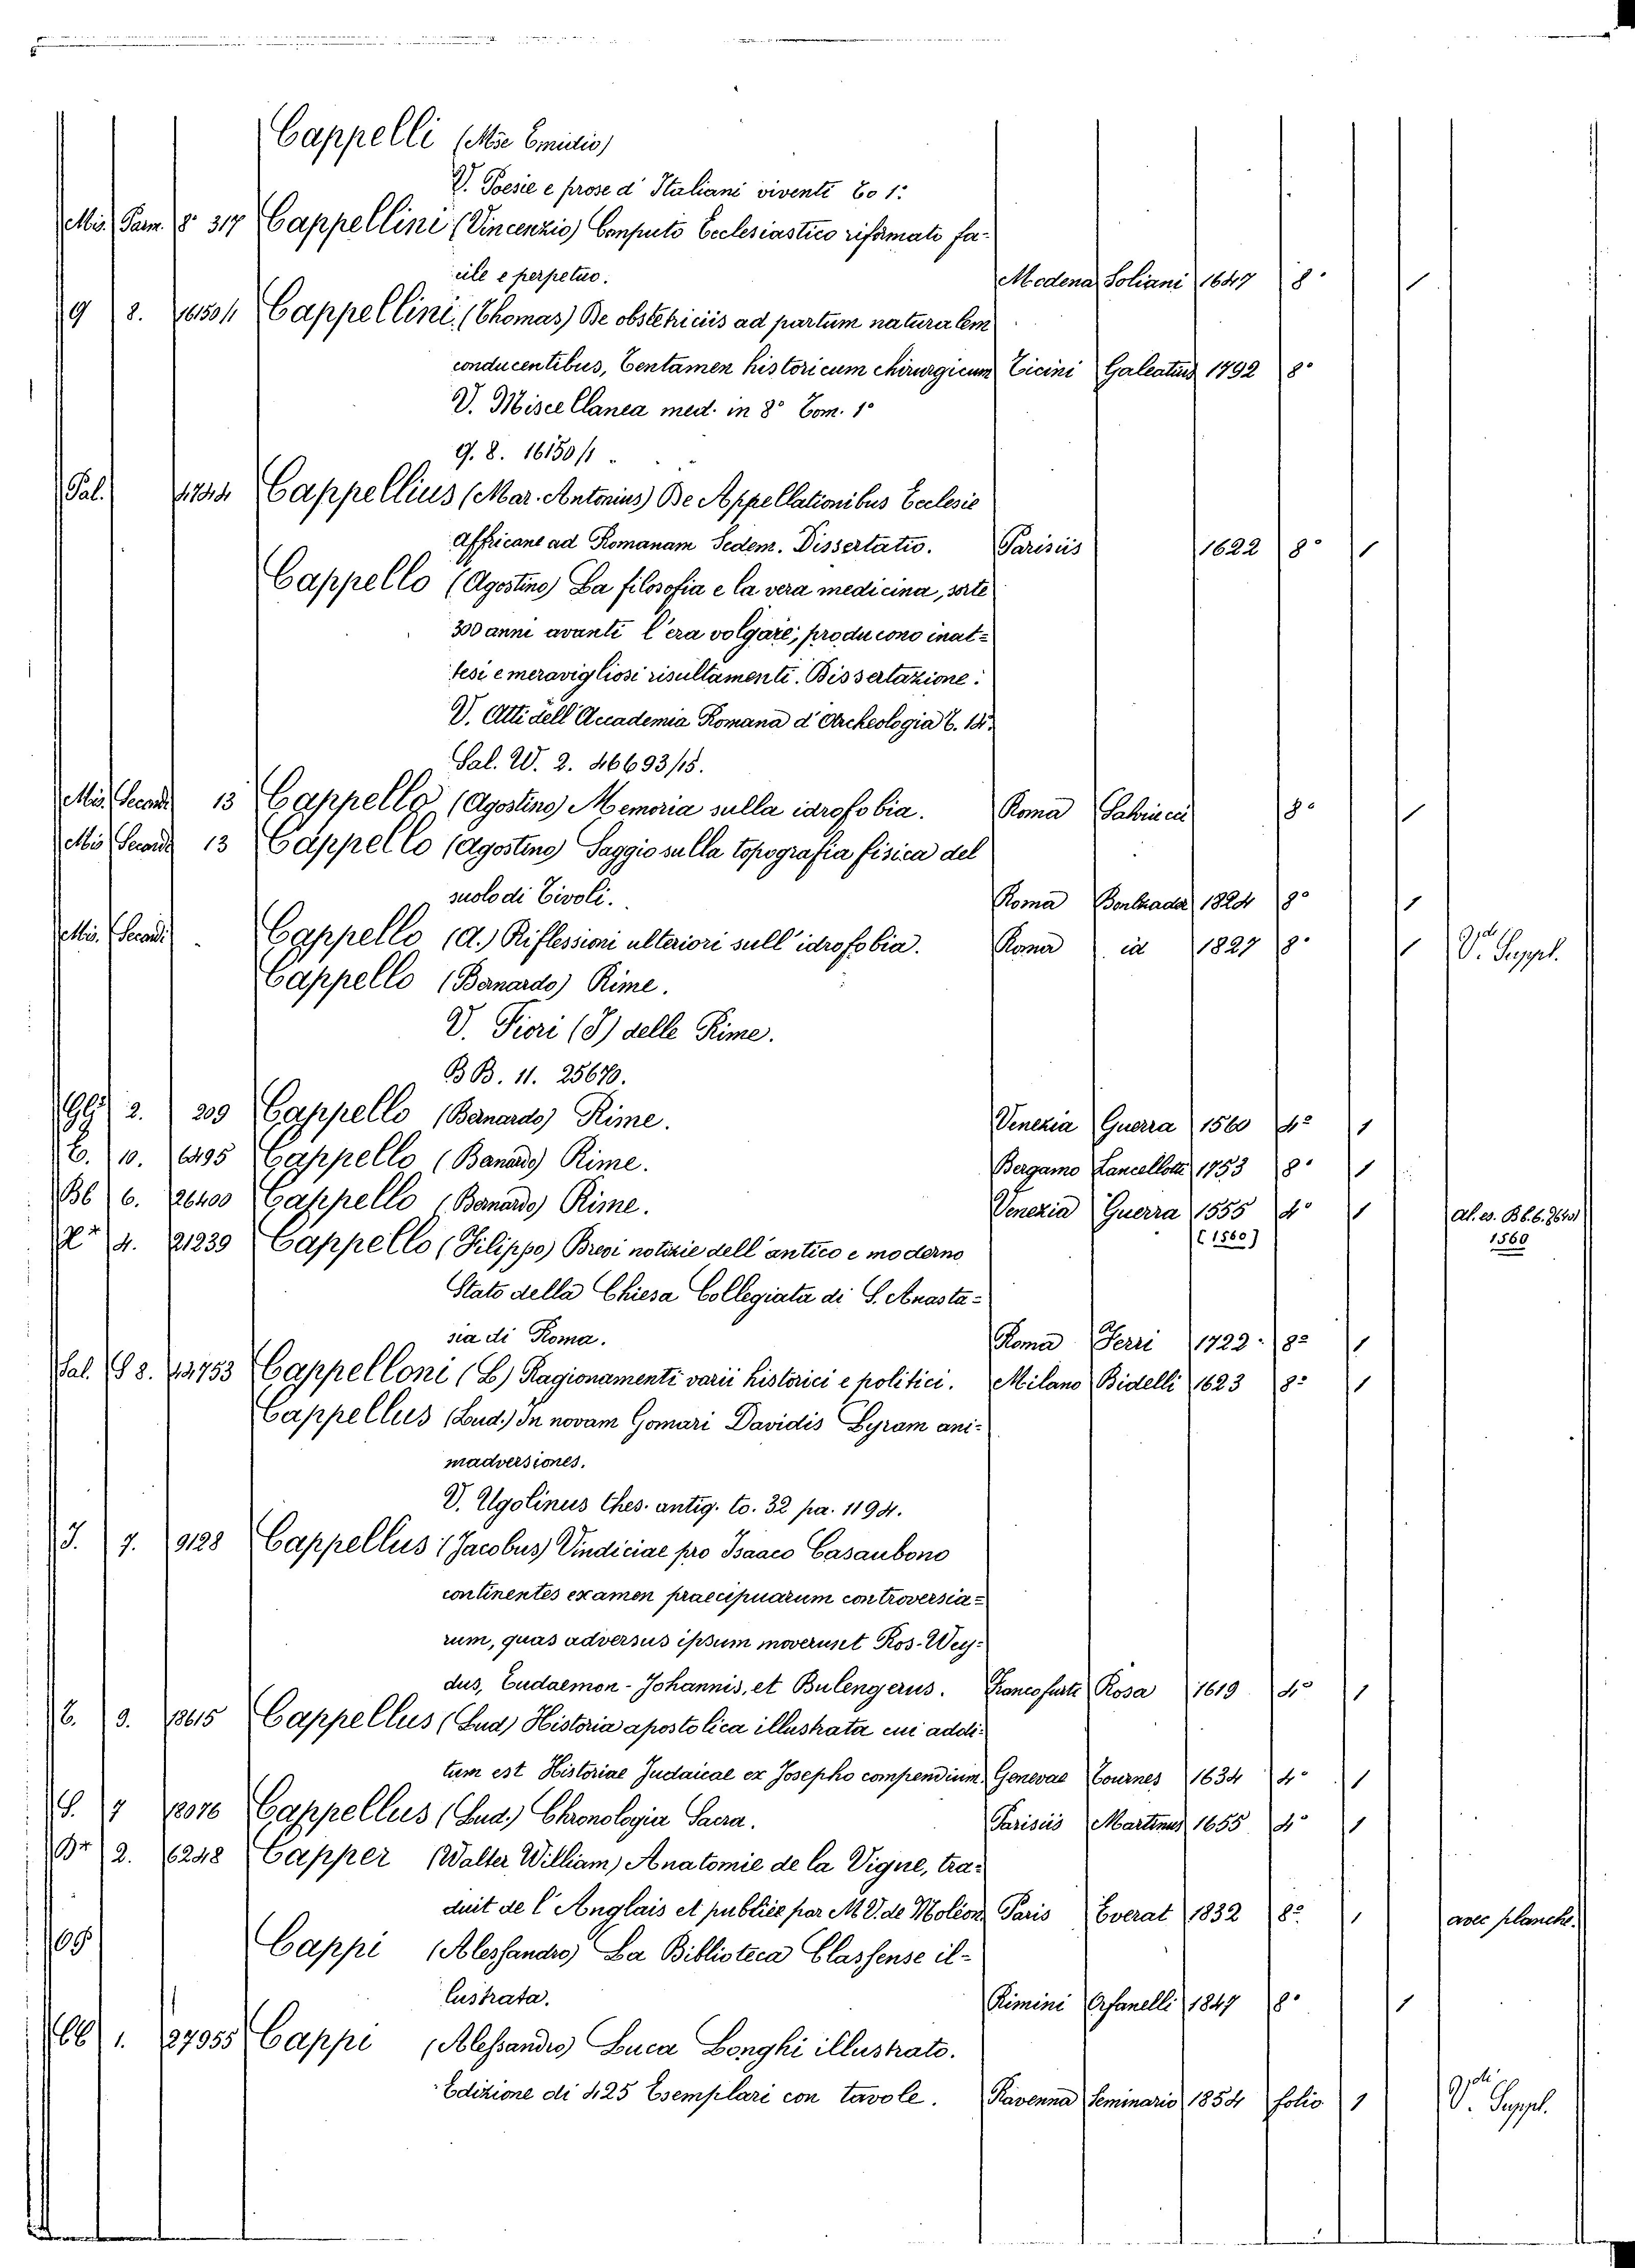 Cappelli (Mse Emidio)
V. Poesie e prose d' Italiani viventi To 1.
Mis. Parm. 8° 317 Cappellini (Vincenzio) Computo Ecclesiastico riformato fa-
cile e perpetuo. Modena Soliani 1647 8° 1
9 8. 16150/1 Cappellini (Thomas) De obstetriciis ad partum naturalem
conducentibus, Tentamen historicum chirurgicum Ticini Galeatius 1792 8°
V. Miscellanea med. in 8° Tom. 1°
9. 8. 16150/1
Pal. Cappellius (Mar. Antonius) De Appellationibus Ecclesie
Affricane ad Romanam Sedem. Dissertatio. Parisiis 1622 8° 1
Cappello (Agostino) La filosofia e la vera medicina, sorte
300 anni avanti l'era volgare, producono inat=
tesi e meravigliosi risultamenti. Dissertazione.
V. Atti dell' Accademia Romana d' Archeologia T.
Sal. W. 2. 46693/15.
Mis. Secondi 13 Cappello (Agostino) Memoria sulla idrofobia. Roma Salviucci 8° 1
Mis Secondi 13 Cappello (Agostino) Saggio sulla topografia fisica del
suolo di Tivoli. Roma 1824 8° 1
Mis. Secondi Cappello (A.) Riflessioni ulteriori sull' idrofobia. Roma id 1827 8° 1 V. Suppl.
Cappello (Bernardo) Rime.
V. Fiori (I) delle Rime.
BB. 11. 25670.
2. 209 Cappello (Bernardo) Rime. Venezia Guerra 1560 4° 1
10. 6495 Cappello (Bernardo) Rime. Bergamo Lancellotti 1753 8° 1
Bb 6. 26400 Cappello (Bernardo) Rime. Venezia Guerra 1555 4° 1
(1560)
Al. es. Bb. 6.
1560
4. 21239 Cappello (Filippo) Brevi notizie dell' antico e moderno
Stato della Chiesa Collegiata di S. Anasta=
sia di Roma. Roma Ferri 1722 8° 1
Sal. 8. 43753 Cappelloni (L) Ragionamenti varii historici e politici. Milano Bidelli 1623 8° 1
Cappellus (Lud.) In novam Gomari Davidis Lyram ani=
madversiones.
V. Ugolinus Thes. antig. to. 32 pa. 1194.
J. 7. 9128 Cappellus (Jacobus) Vindiciae pro Isaaco Casaubono
continentes examen praecipuarum controversia=
rum, quas adversus ipsum moverunt Ros-Wey=
dus, Eudaemon-Johannis, et Bulengerus. Francofurti Rosa 1619 4° 1
9. 18615 Cappellus (Lud) Historia apostolica illustrata cui addi=
tum est Historiae Judaicae ex Josepho compendium Genevae Tournes 1634 4° 1
S. 7 12076 Cappellus (Lud.) Chronologia Sacra. Parisiis Martinus 1655 4° 1
2. 6248 Capper (Walter William) Anatomie de la Vigne, tra=
duit de l' Anglais et publiée par M V. de Moléon Paris Everat 1832 8° 1 avec planche.
Cappi (Alessandro) La Biblioteca Classense il=
lustrata. Rimini Orfanelli 1847 8° 1
1. 27955 Cappi (Alessandro) Luca Longhi illustrato.
Edizione di 425 Esemplari con tavole. Ravenna Seminario 1854 folio 1 V. Suppl.